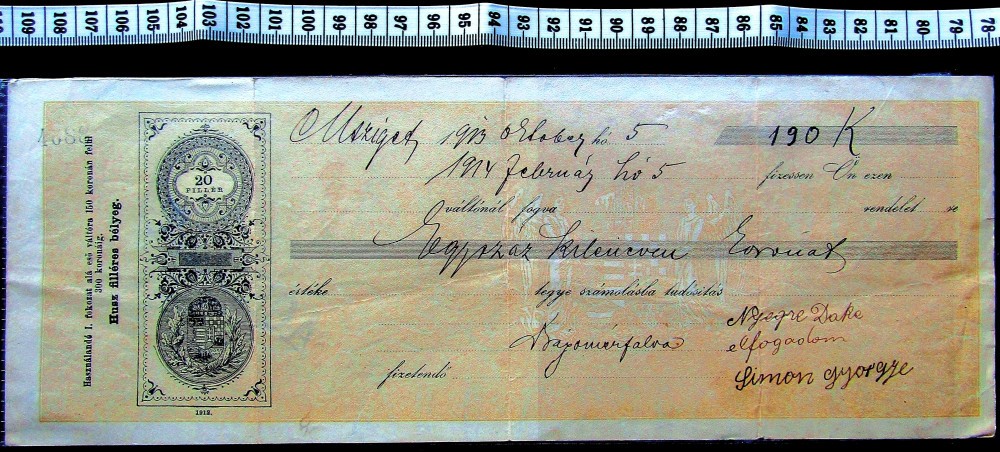 109 108 107 106 105 104 103 102 101 100 99 98 97 96 95 94 93 92 91 90 89 88 87 86 85 84 83 82 81 80 79 78
Használandó I. fokozat alá eső váltóra 150 koronán felül
300 koronáig.
Husz filléres bélyeg.
20
FILLÉR
1912.
Msziget 1913 október hó 5 190 K
1914 február hó 5 fizessen Ön ezen
váltónál fogva rendelet re
Egyszáz kilencven koronát
értéke tegye számolásba tudósítás
Nyegre Dake
elfogadom
fizetendő Simon gyorgye